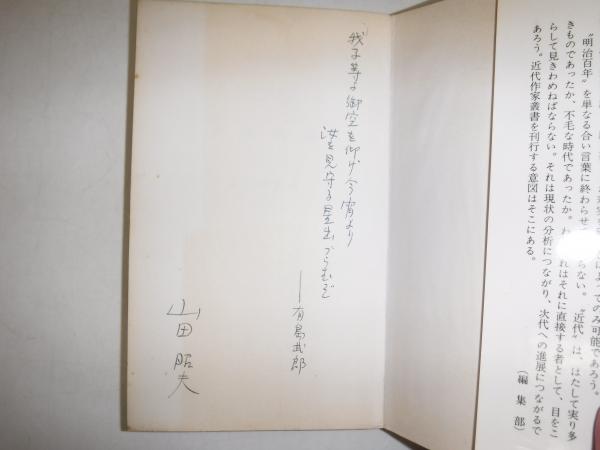 “明治百年”を単なる合い言葉に終わらせ
らない。“近代”は、はたして実り多
きものであったか、不毛な時代であったか。わ
れはそれに直接する者として、目をこ
らして見きわめねばならない。それは現状の分析につながり、次代への進展につながるで
あろう。近代作家叢書を刊行する意図はそこにある。
（編集部）
我子等よ御空を仰げ今宵より
汝を見守る星出づらむぞ
——有島武郎
山田昭夫